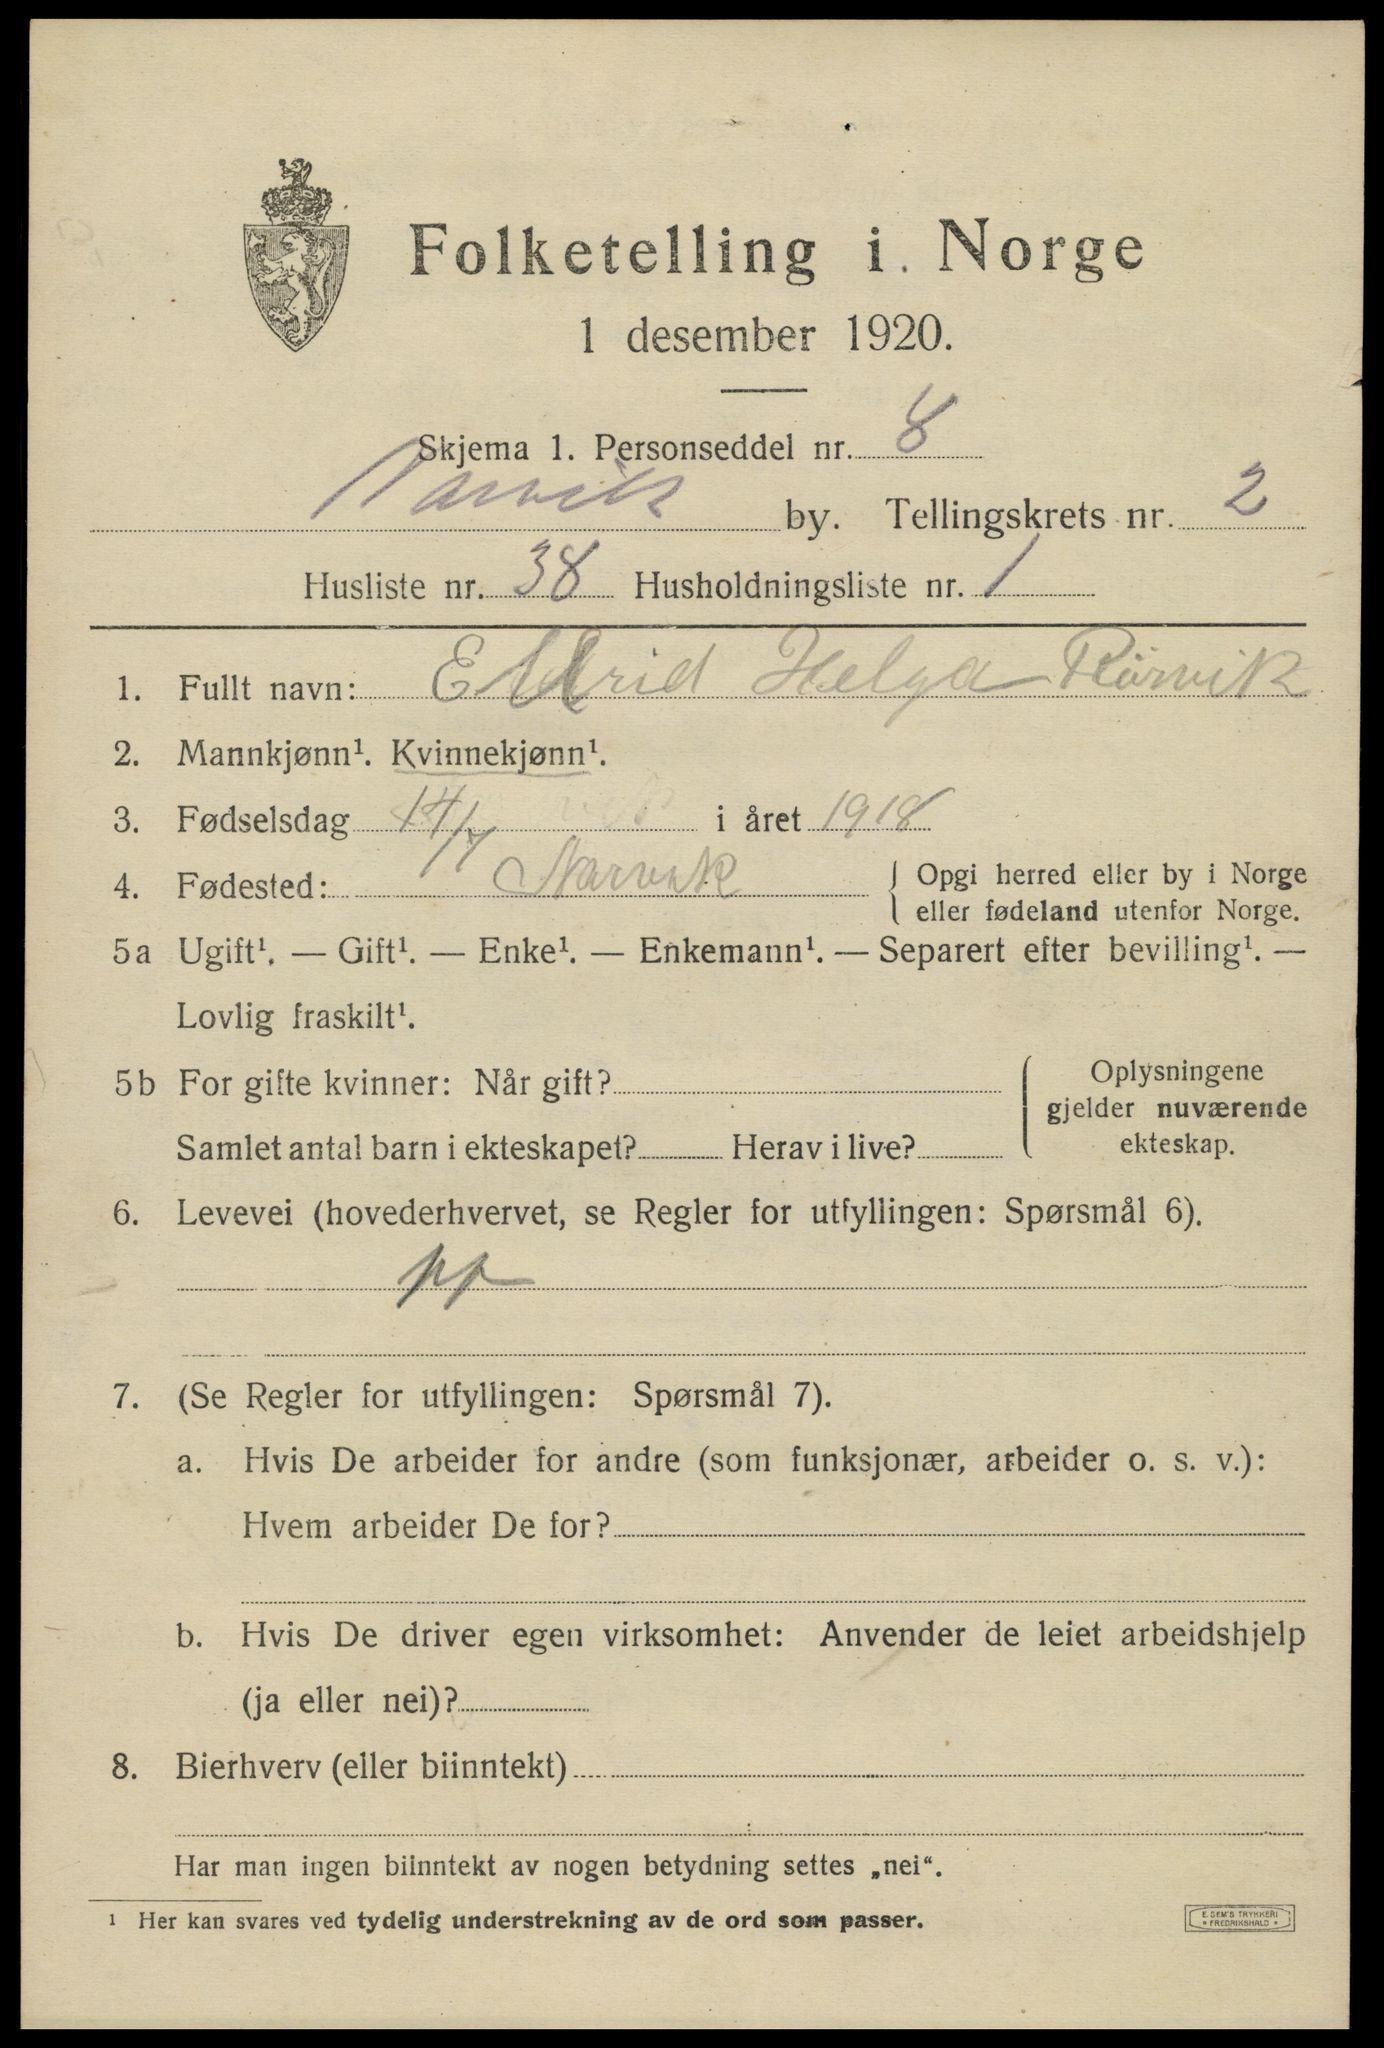 Folketelling i Norge
1 desember 1920.
Skjema 1. Personseddel nr. 8
Narvik by. Tellingskrets nr. 2
Husliste nr. 38 Husholdningsliste nr. 1
1. Fullt navn: Helga Rörvik
2. Mannkjønn¹. Kvinnekjønn¹.
3. Fødselsdag 14/7 i året 1918
4. Fødested: Narvik { Opgi herred eller by i Norge
eller fødeland utenfor Norge.
5a Ugift¹. — Gift¹. — Enke¹. — Enkemann¹. — Separert efter bevilling¹. —
Lovlig fraskilt¹.
5b For gifte kvinner: Når gift? { Oplysningene
gjelder nuværende
Samlet antal barn i ekteskapet? Herav i live? ekteskap.
6. Levevei (hovederhvervet, se Regler for utfyllingen: Spørsmål 6).
pp
7. (Se Regler for utfyllingen: Spørsmål 7).
a. Hvis De arbeider for andre (som funksjonær, arbeider o. s. v.):
Hvem arbeider De for?
b. Hvis De driver egen virksomhet: Anvender de leiet arbeidshjelp
(ja eller nei)?
8. Bierhverv (eller biinntekt)
Har man ingen biinntekt av nogen betydning settes „nei“.
¹ Her kan svares ved tydelig understrekning av de ord som passer.
E. SEM'S TRYKKERI
* FREDRIKSHALD *